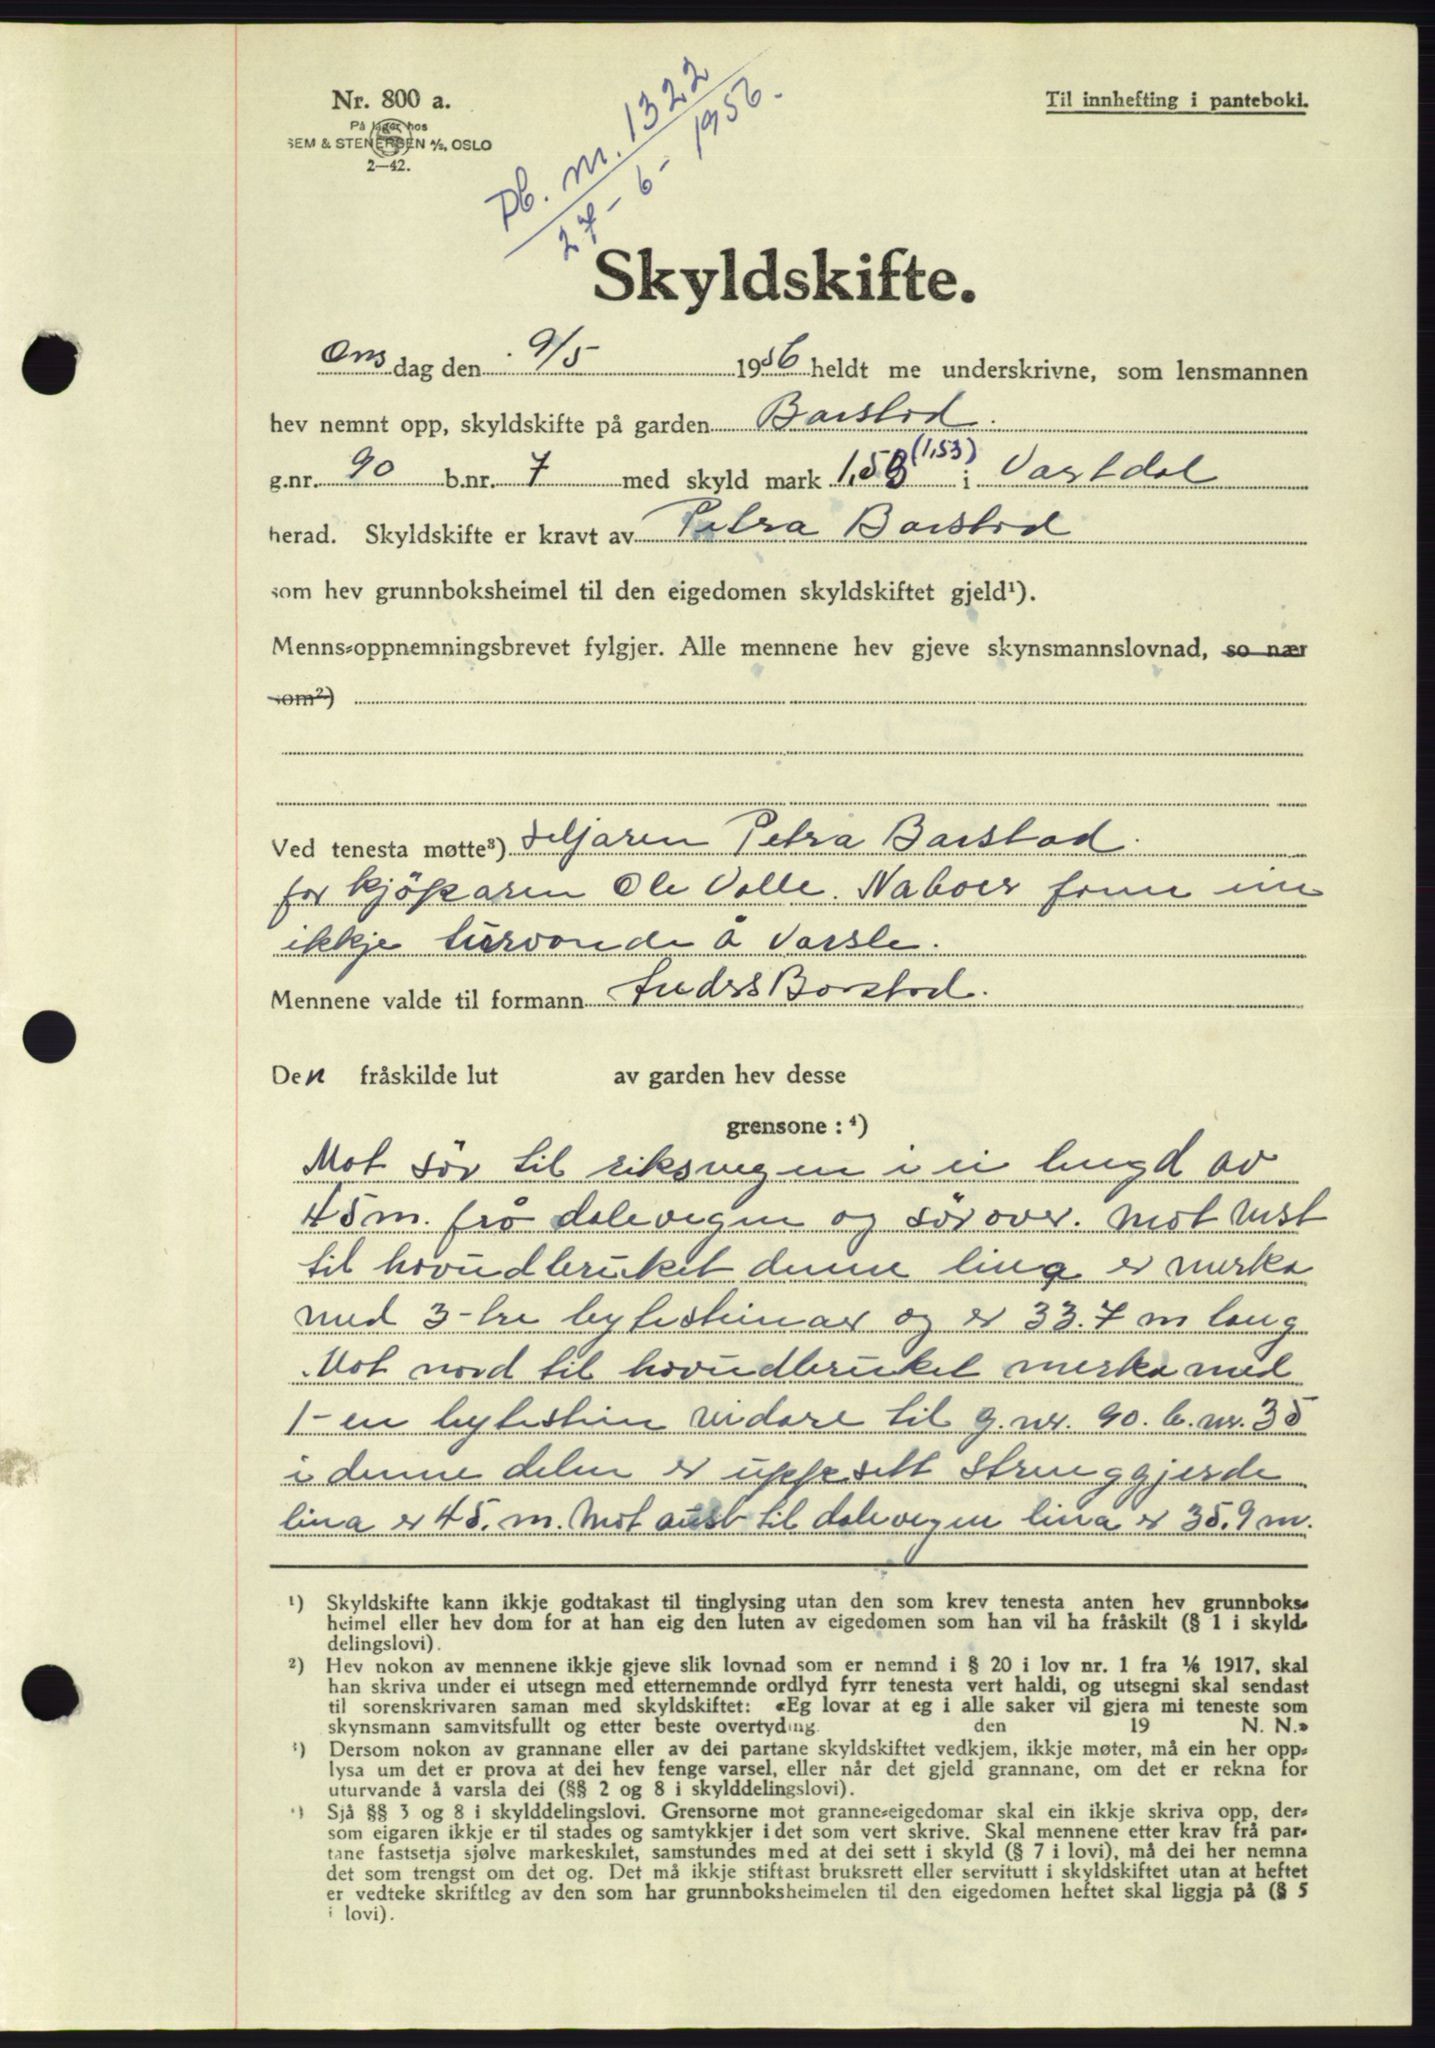 Nr. 800 a.
På lager hos
SEM & STENERSEN A/S, OSLO
2—42.
Til innhefting i panteboki.
Db. nr. 1322
27-6-1956.
Skyldskifte.
Onsdag den 9/5 1956 heldt me underskrivne, som lensmannen
hev nemnt opp, skyldskifte på garden Barstad.
g.nr. 90 b.nr. 7 med skyld mark 1,53 (1,53) i Vartdal
herad. Skyldskifte er kravt av Petra Barstad
som hev grunnboksheimel til den eigedomen skyldskiftet gjeld¹).
Menns-oppnemningsbrevet fylgjer. Alle mennene hev gjeve skynsmannslovnad, so nær
som²)
Ved tenesta møtte³) seljaren Petra Barstad.
for kjöparen Ole Valle. Naboer fann ein
ikkje turvande å varsle.
Mennene valde til formann Anders Barstad.
Den fråskilde lut av garden hev desse
grensone : ⁴)
Mot sör til riksvegen i ei lengd av
45 m. frå dalevegen og sör over. mot vest
til hovudbruket denne lina er merka
med 3-tre bytesteinar og er 33.7 m lang
Mot nord til hovudbruket merka med
1-en bytestein vidare til g.nr. 90. b.nr. 35
i denne delen er uppsett strenggjerde
lina er 45. m. Mot aust til dalevegen lina er 35,9 m.
¹) Skyldskifte kann ikkje godtakast til tinglysing utan den som krev tenesta anten hev grunnboks-
heimel eller hev dom for at han eig den luten av eigedomen som han vil ha fråskilt (§ 1 i skyld-
delingslovi).
²) Hev nokon av mennene ikkje gjeve slik lovnad som er nemnd i § 20 i lov nr. 1 fra 1/6 1917, skal
han skriva under ei utsegn med etternemnde ordlyd fyrr tenesta vert haldi, og utsegni skal sendast
til sorenskrivaren saman med skyldskiftet: «Eg lovar at eg i alle saker vil gjera mi teneste som
skynsmann samvitsfullt og etter beste overtyding. den 19 N. N.»
³) Dersom nokon av grannane eller av dei partane skyldskiftet vedkjem, ikkje møter, må ein her opp-
lysa um det er prova at dei hev fenge varsel, eller når det gjeld grannane, om det er rekna for
uturvande å varsla dei (§§ 2 og 8 i skylddelingslovi).
⁴) Sjå §§ 3 og 8 i skylddelingslovi. Grensorne mot granne-eigedomar skal ein ikkje skriva opp, der-
som eigaren ikkje er til stades og samtykkjer i det som vert skrive. Skal mennene etter krav frå par-
tane fastsetja sjølve markeskilet, samstundes med at dei sett i skyld (§ 7 i lovi), må dei her nemna
det som trengst om det og. Det må ikkje stiftast bruksrett eller servitutt i skyldskiftet utan at heftet
er vedteke skriftleg av den som har grunnboksheimelen til den eigedomen heftet skal liggja på (§ 5
i lovi).